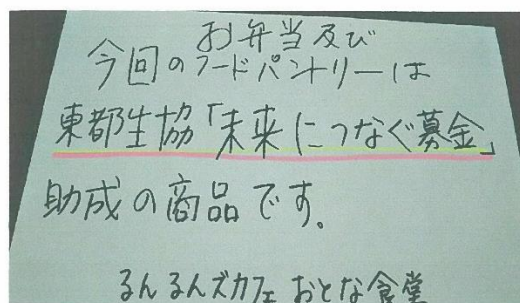 お弁当及び
今回のフードパントリーは
東都生協「未来につなぐ募金」
助成の商品です。
るんるんズカフェ おとな食堂